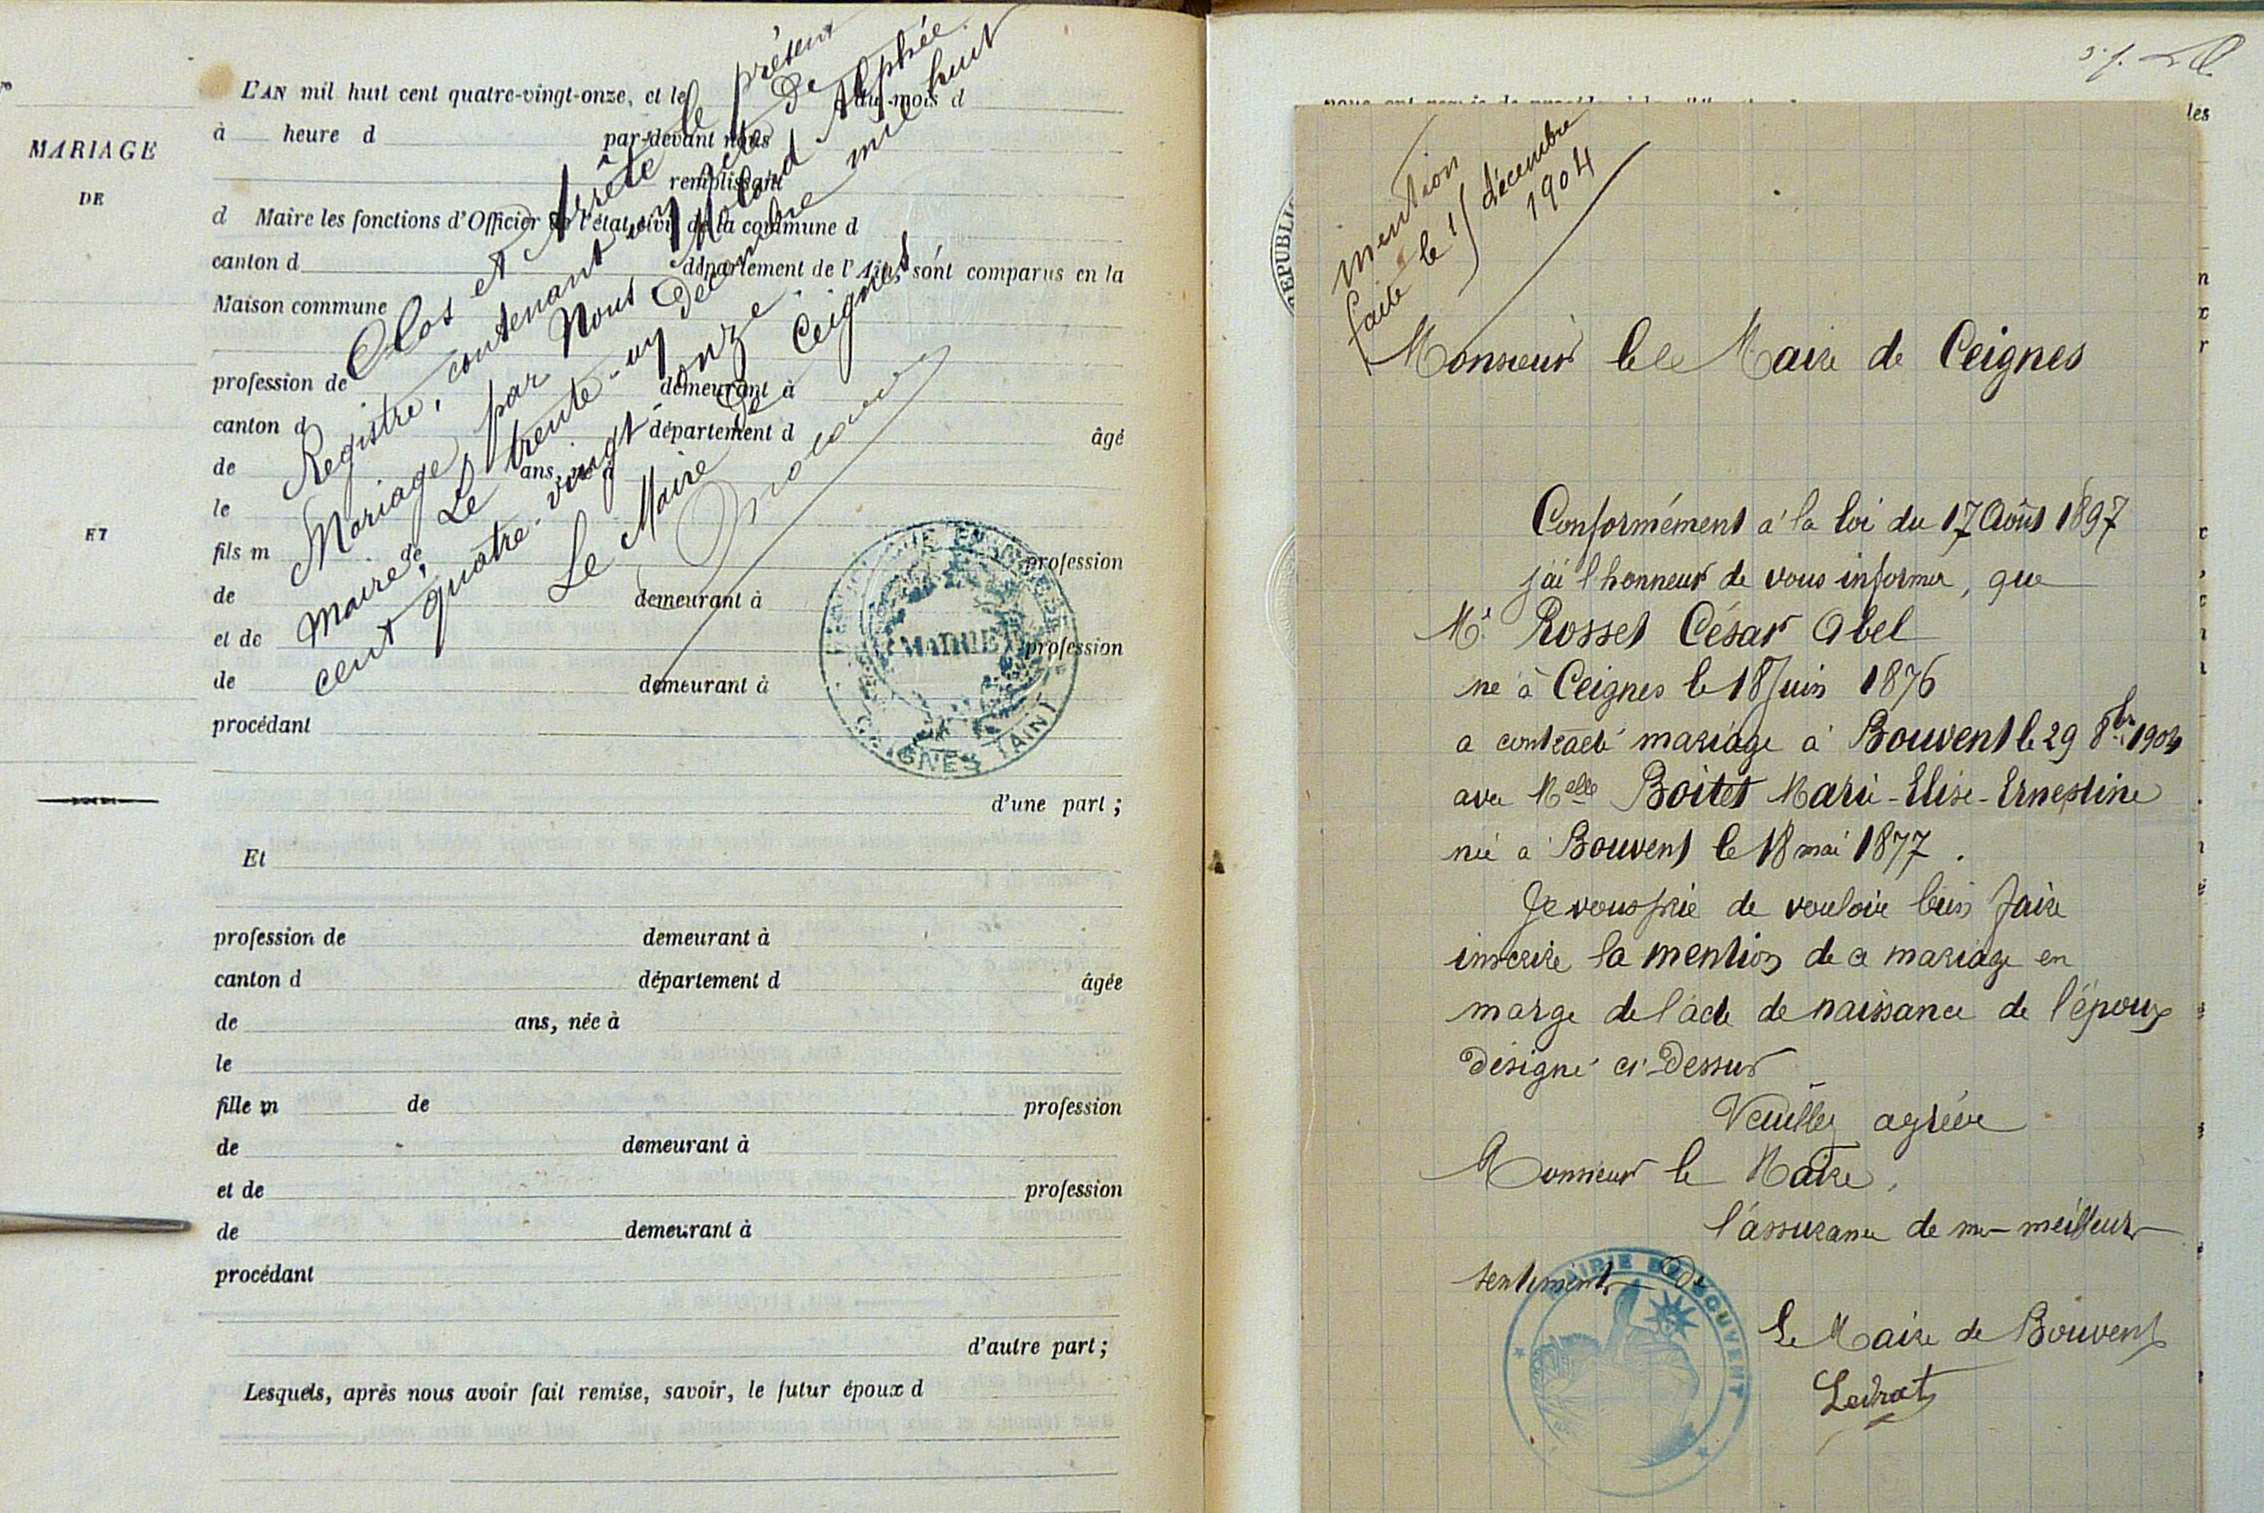 MARIAGE
DE
ET
L'AN mil huit cent quatre-vingt-onze, et le du mois d
à heure d par-devant nous
remplissant
d Maire les fonctions d'Officier de l'état civil de la commune d
canton d département de l'Ain, sont comparus en la
Maison commune
profession de demeurant à
canton d département d âgé
de ans, né à
le
fils m profession
de demeurant à
et de profession
de demeurant à
procédant
d'une part ;
Et
profession de demeurant à
canton d département d âgée
de ans, née à
le
fille m de profession
de demeurant à
et de profession
de demeurant à
procédant
d'autre part ;
Lesquels, après nous avoir fait remise, savoir, le futur époux d
Clos et Arrêté le présent
Registre, contenant un acte de
Mariage par Nous Moland Alphée
Maire de, Le trente-un Décembre mil huit
cent quatre-vingt-onze.
Le Maire de Ceignes
MAIRIE
CEIGNES (AIN)
les
mention
faite le 1 décembre
1904
Monsieur le Maire de Ceignes
Conformément à la loi du 17 Août 1897
j'ai l'honneur de vous informer, que
Mr Rosset César Abel
né à Ceignes le 18 Juin 1876
a contracté mariage à Bouvent le 29 8bre 1904
avec Melle Boitet Marie-Elise-Ernestine
née à Bouvent le 18 mai 1877.
Je vous prie de vouloir bien faire
inscrire la mention de ce mariage en
marge de l'acte de naissance de l'époux
désigné ci-Dessus
Veuillez agréer
Monsieur le Maire,
l'assurance de mes meilleurs
sentiments
MAIRIE DE BOUVENT
Le Maire de Bouvent